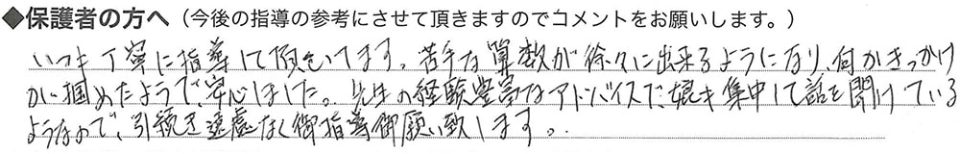 ◆保護者の方へ（今後の指導の参考にさせて頂きますのでコメントをお願いします。）
いつも丁寧に指導して頂いてます。苦手な算数が徐々に出来るようになり、何かきっかけ
が掴めたようで、安心しました。先生の経験豊富なアドバイスで、娘も集中して話を聞けている
ようなので、引続き遠慮なく御指導御願い致します。